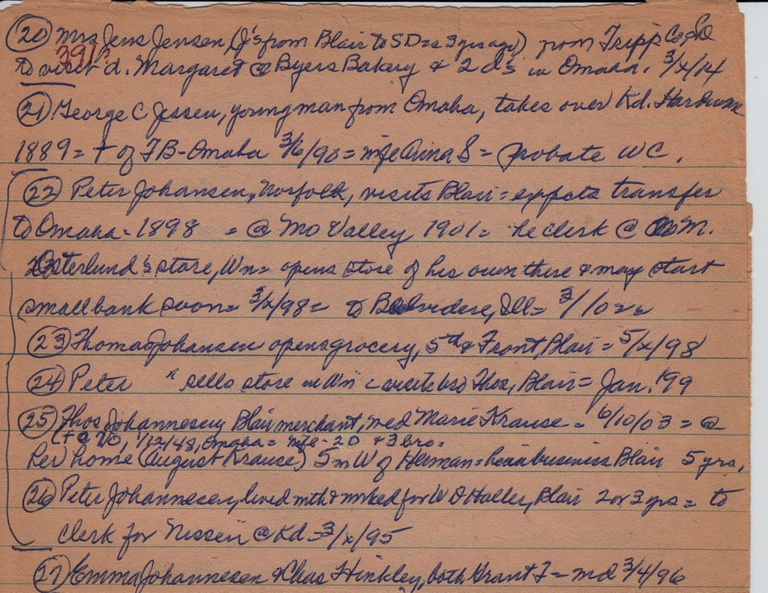 (20) Mrs Jens Jensen (J's from Blair to SD = 3 yrs ago) from Tripp Co SD
391?
to visit d. Margaret @ Byers Bakery & 2 d's in Omaha. 3/x/14
(21) George C Jessen, young man from Omaha, takes over Kd. Hardware
1889 = + of TB - Omaha 3/6/98 = wife Anna S = probate WC.
(22) Peter Johansen, Norfolk, visits Blair = expects transfer
to Omaha - 1898 = @ Mo Valley 1901 = he clerk @ M.
Osterlund's store, Wn = opens store of his own there & may start
small bank soon = 3/x/98 = to Belvidere, Ill = 3/10 ==
(23) Thomas Johansen opens grocery, 5th & Front, Blair = 5/x/98
(24) Peter " sells store in Wn = bro Thos, Blair = Jan. '99
(25) Thos Johannesen, Blair merchant, wed Marie Krause = 6/10/03 = @
(+ @ 70, 1/12/48, Omaha = wife - 2D + 3 bro =
her home (August Krause) 5 m W of Herman = business Blair 5 yrs.
(26) Peter Johannesen, lived with & worked for W D Haller, Blair 2 or 3 yrs = to
clerk for Nissen @ Kd = 3/x/95
(27) Emma Johannesen & Chas Hinkley, both Grant T = md 3/4/96